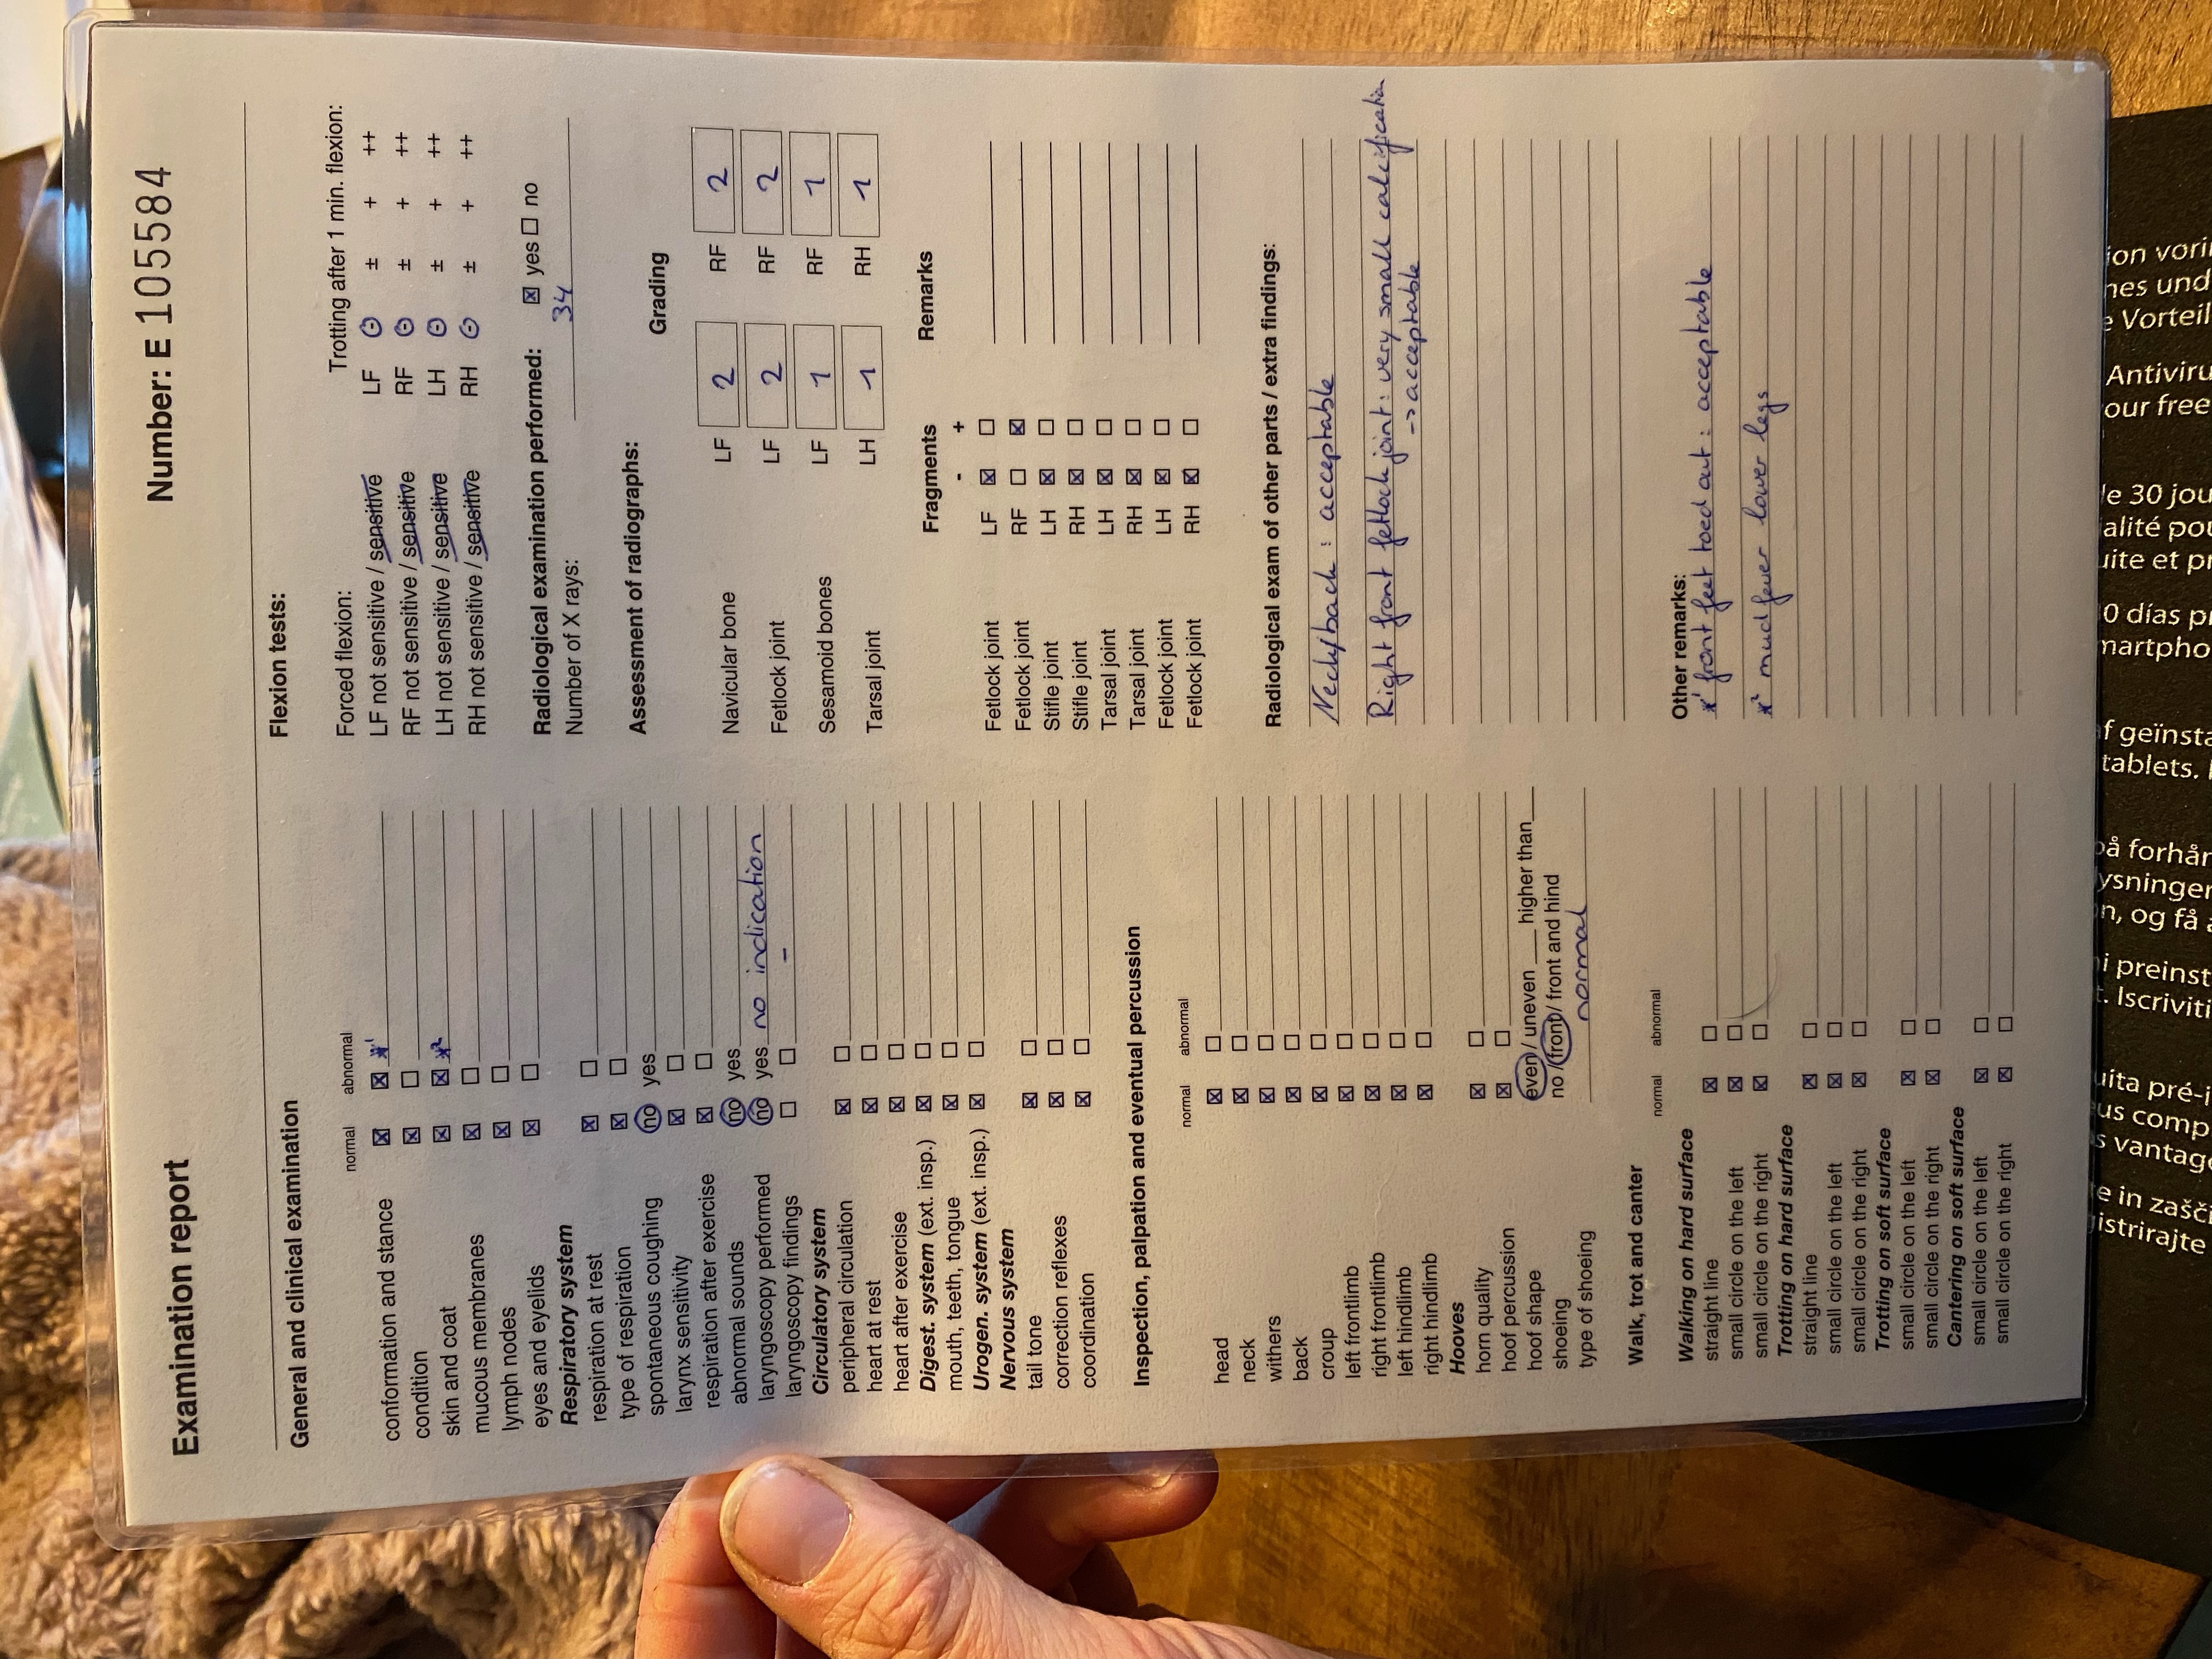 Examination report
Number: E 105584
General and clinical examination
normal abnormal
conformation and stance ☒ ☒ *1
condition ☒ ☐
skin and coat ☒ ☒ *2
mucous membranes ☒ ☐
lymph nodes ☒ ☐
eyes and eyelids ☒ ☐
Respiratory system
respiration at rest ☒ ☐
type of respiration ☒ ☐
spontaneous coughing no yes
larynx sensitivity ☒ ☐
respiration after exercise ☒ ☐
abnormal sounds no yes
laryngoscopy performed no yes no indication
laryngoscopy findings ☐ ☐ -
Circulatory system
peripheral circulation ☒ ☐
heart at rest ☒ ☐
heart after exercise ☒ ☐
Digest. system (ext. insp.) ☒ ☐
mouth, teeth, tongue ☒ ☐
Urogen. system (ext. insp.) ☒ ☐
Nervous system
tail tone ☒ ☐
correction reflexes ☒ ☐
coordination ☒ ☐
Inspection, palpation and eventual percussion
normal abnormal
head ☒ ☐
neck ☒ ☐
withers ☒ ☐
back ☒ ☐
croup ☒ ☐
left frontlimb ☒ ☐
right frontlimb ☒ ☐
left hindlimb ☒ ☐
right hindlimb ☒ ☐
Hooves
horn quality ☒ ☐
hoof percussion ☒ ☐
hoof shape even / uneven ___ higher than ___
shoeing no / front / front and hind
type of shoeing normal
Walk, trot and canter
normal abnormal
Walking on hard surface
straight line ☒ ☐
small circle on the left ☒ ☐
small circle on the right ☒ ☐
Trotting on hard surface
straight line ☒ ☐
small circle on the left ☒ ☐
small circle on the right ☒ ☐
Trotting on soft surface
small circle on the left ☒ ☐
small circle on the right ☒ ☐
Cantering on soft surface
small circle on the left ☒ ☐
small circle on the right ☒ ☐
Flexion tests:
Forced flexion: Trotting after 1 min. flexion:
LF not sensitive / sensitive LF - ± + ++
RF not sensitive / sensitive RF - ± + ++
LH not sensitive / sensitive LH - ± + ++
RH not sensitive / sensitive RH - ± + ++
Radiological examination performed: ☒ yes ☐ no
Number of X rays: 34
Assessment of radiographs: Grading
Navicular bone LF 2 RF 2
Fetlock joint LF 2 RF 2
Sesamoid bones LF 1 RF 1
Tarsal joint LH 1 RH 1
Fragments Remarks
- +
Fetlock joint LF ☒ ☐
Fetlock joint RF ☐ ☒
Stifle joint LH ☒ ☐
Stifle joint RH ☒ ☐
Tarsal joint LH ☒ ☐
Tarsal joint RH ☒ ☐
Fetlock joint LH ☒ ☐
Fetlock joint RH ☒ ☐
Radiological exam of other parts / extra findings:
Neck/back : acceptable
Right front fetlock joint: very small calcification
-> acceptable
Other remarks:
*1 front feet toed out : acceptable
*2 mud fever lower legs
ion vorin
nes und
e Vorteil
Antiviru
our free
le 30 jou
ialité pou
uite et p
0 días p
martpho
f geïnsta
tablets.
på forhår
ysninger
n, og få
i preinst
t. Iscriviti
uita pré-i
us comp
s vantage
e in zašči
istrirajte